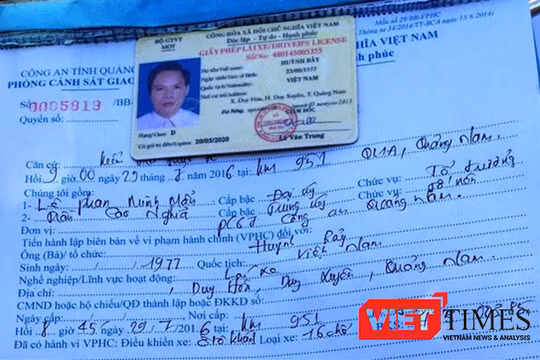 Mẫu số 29-BB-VPHC
Thông tư 34/2014/TT-BCA ngày 15/8/2014
NGHĨA VIỆT NAM
phúc
BỘ GTVT
MOT
CỘNG HÒA XÃ HỘI CHỦ NGHĨA VIỆT NAM
Độc lập - Tự do - Hạnh phúc
GIẤY PHÉP LÁI XE/DRIVER'S LICENSE
Số/No: 480145005355
Họ tên/Full name:
HUỲNH BẢY
Ngày sinh/Date of Birth:
Quốc tịch/Nationality:
VIỆT NAM
Nơi cư trú/Address:
X. Duy Hòa, H. Duy Xuyên, T. Quảng Nam
Lê Văn Trung
Hạng/Class: D
Có giá trị đến/Expires: 20/05/2020
CÔNG AN TỈNH QUẢNG
PHÒNG CẢNH SÁT GIAO
Số: 0005819 /BB-
Quyển số:
Căn cứ:
Hồi 9 giờ 00 ngày 29 - 7 / 2016 tại km 951 QL1A, Quảng Nam.
Chúng tôi gồm:
1- Lê Phan Cấp bậc: Đại úy Chức vụ: Tổ trưởng
2- Trần Cao Nghĩa Cấp bậc: Trung úy Chức vụ: Tổ viên
Đơn vị: PC67 Công an Quảng Nam.
Tiến hành lập biên bản về vi phạm hành chính (VPHC) đối với:
Ông (Bà)/ tổ chức: Huỳnh Bảy
Sinh ngày / / 1977 Quốc tịch: Việt Nam
Nghề nghiệp/Lĩnh vực hoạt động: Lái xe
Địa chỉ: Duy Hòa, Duy Xuyên, Quảng Nam.
CMND hoặc hộ chiếu/QĐ thành lập hoặc ĐKKD số:
Ngày cấp: / / Nơi cấp:
Hồi 8 giờ 45 ngày 29 / 7 / 2016 tại km 951
Đã có hành vi VPHC: Điều khiển xe: Ô tô khách Loại xe: 16 chỗ
VIETTIMES
VIETNAM NEWS & ANALYSIS